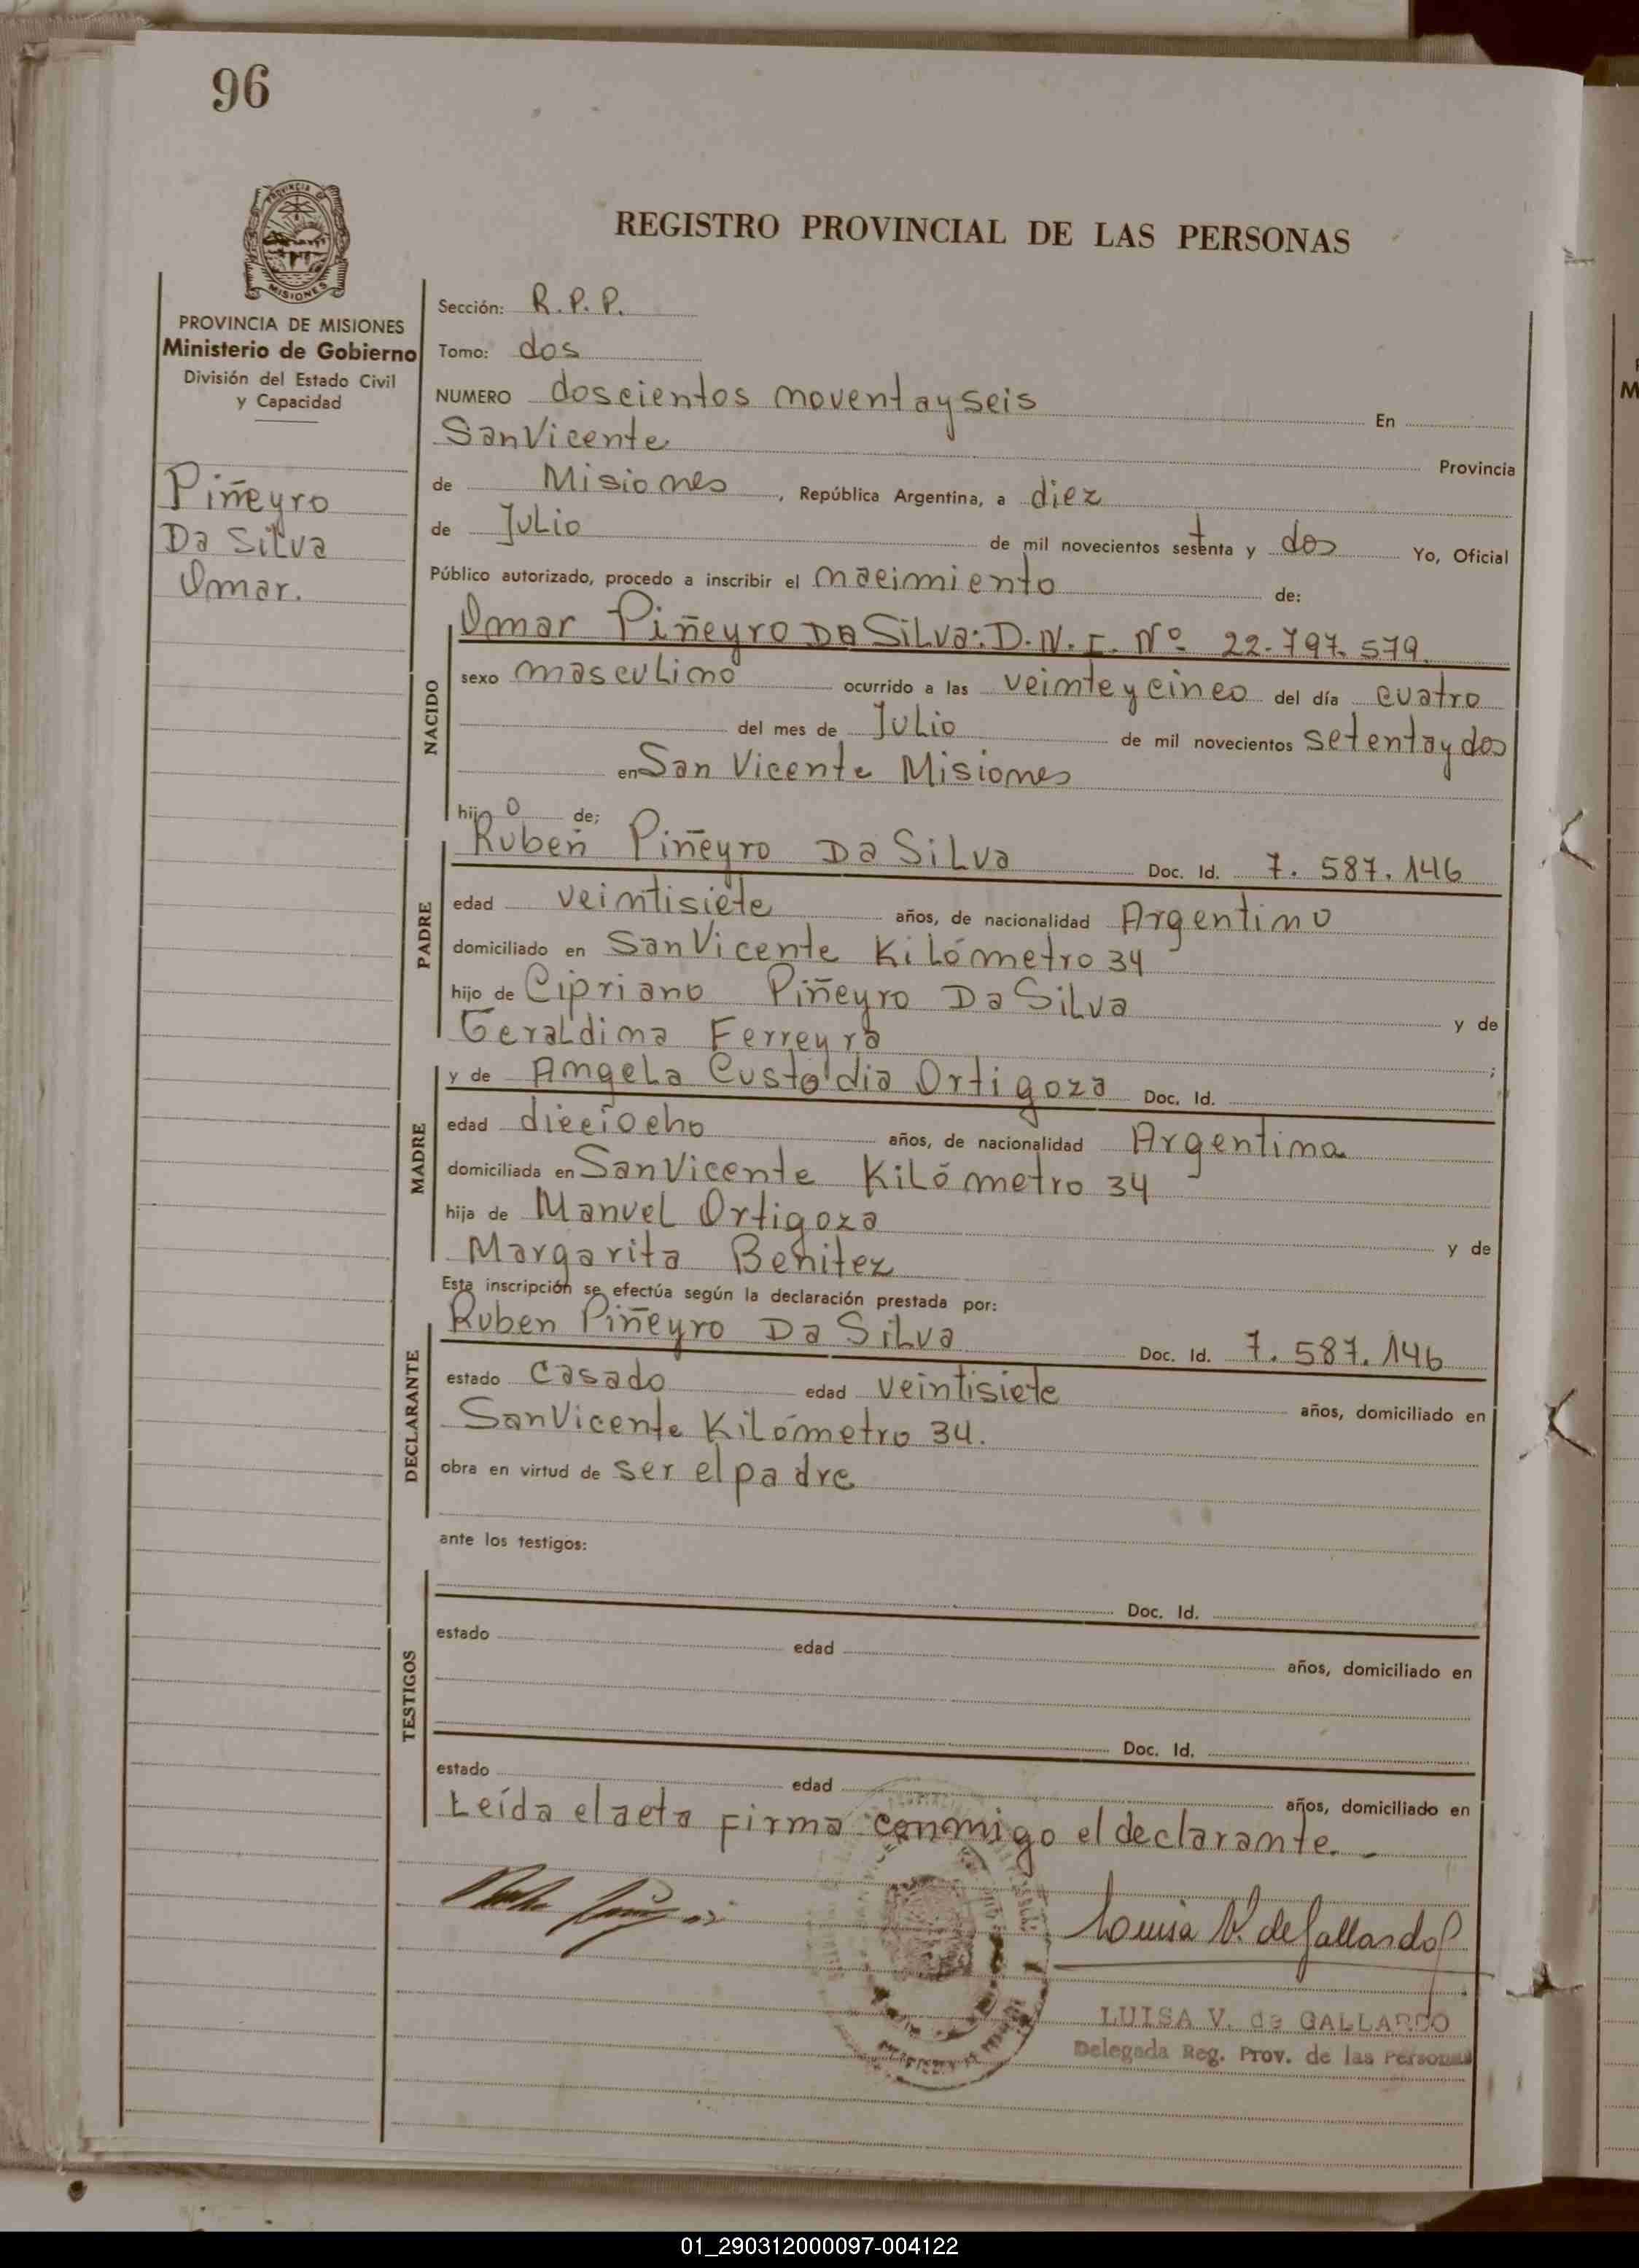 96
PROVINCIA DE
MISIONES
REGISTRO PROVINCIAL DE LAS PERSONAS
PROVINCIA DE MISIONES
Ministerio de Gobierno
División del Estado Civil
y Capacidad
Piñeyro
Da Silva
Omar.
Sección: R.P.P.
Tomo: dos
NUMERO doscientos noventayseis En
SanVicente Provincia
de Misiones, República Argentina, a diez
de Julio de mil novecientos setenta y dos Yo, Oficial
Público autorizado, procedo a inscribir el nacimiento de:
NACIDO
Omar Piñeyro Da Silva: D.N.I. Nº 22.797.579.
sexo masculino ocurrido a las veinteycinco del día cuatro
del mes de Julio de mil novecientos setentaydos
en San Vicente Misiones
hijo de;
PADRE
Ruben Piñeyro Da Silva Doc. Id. 7.587.146
edad veintisiete años, de nacionalidad Argentino
domiciliado en SanVicente Kilómetro 34
hijo de Cipriano Piñeyro Da Silva y de
Geraldina Ferreyra ;
MADRE
y de Angela Custodia Ortigoza Doc. Id.
edad dieciocho años, de nacionalidad Argentina
domiciliada en SanVicente Kilómetro 34
hija de Manuel Ortigoza y de
Margarita Benitez
Esta inscripción se efectúa según la declaración prestada por:
DECLARANTE
Ruben Piñeyro Da Silva Doc. Id. 7.587.146
estado casado edad veintisiete años, domiciliado en
SanVicente Kilómetro 34.
obra en virtud de ser el padre
ante los testigos:
TESTIGOS
Doc. Id.
estado edad años, domiciliado en
Doc. Id.
estado edad años, domiciliado en
Leída el acta firma conmigo el declarante.-
Louisa V. de Gallardo
LUISA V. de GALLARDO
Delegada Reg. Prov. de las Personas
01_290312000097-004122